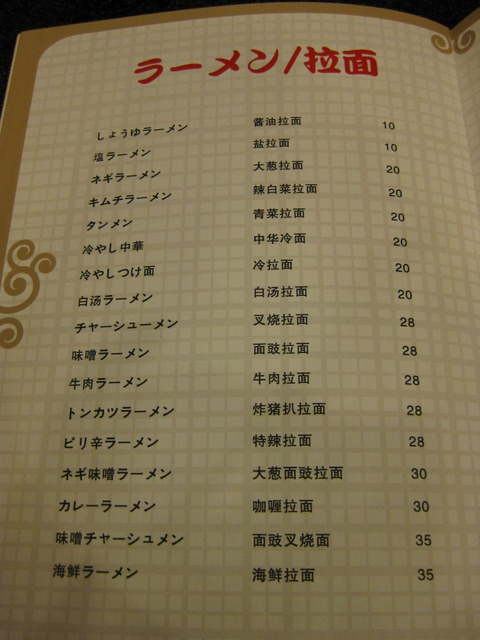 ラーメン/拉面
しょうゆラーメン 酱油拉面 10
塩ラーメン 盐拉面 10
ネギラーメン 大葱拉面 20
キムチラーメン 辣白菜拉面 20
タンメン 青菜拉面 20
冷やし中華 中华冷面 20
冷やしつけ面 冷拉面 20
白汤ラーメン 白汤拉面 20
チャーシューメン 叉烧拉面 28
味噌ラーメン 面豉拉面 28
牛肉ラーメン 牛肉拉面 28
トンカツラーメン 炸猪扒拉面 28
ピリ辛ラーメン 特辣拉面 28
ネギ味噌ラーメン 大葱面豉拉面 30
カレーラーメン 咖喱拉面 30
味噌チャーシュメン 面豉叉烧面 35
海鲜ラーメン 海鲜拉面 35